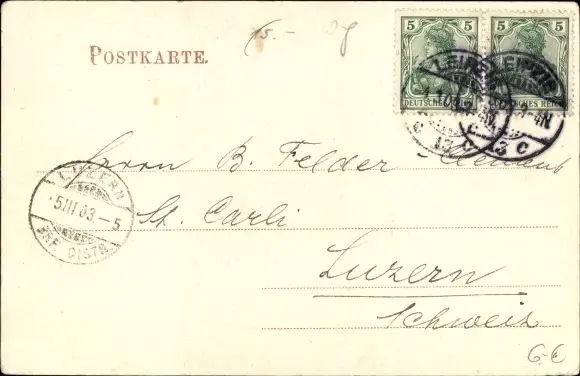 15.-
POSTKARTE.
5 5
DEUTSCHES REICH
LEIPZIG
13 C
3 C
Herrn B. Felder-Clemens
St. Carli
LUZERN
5 III 03 - 5
BRF. DISTR.
Luzern
Schweiz
6-€